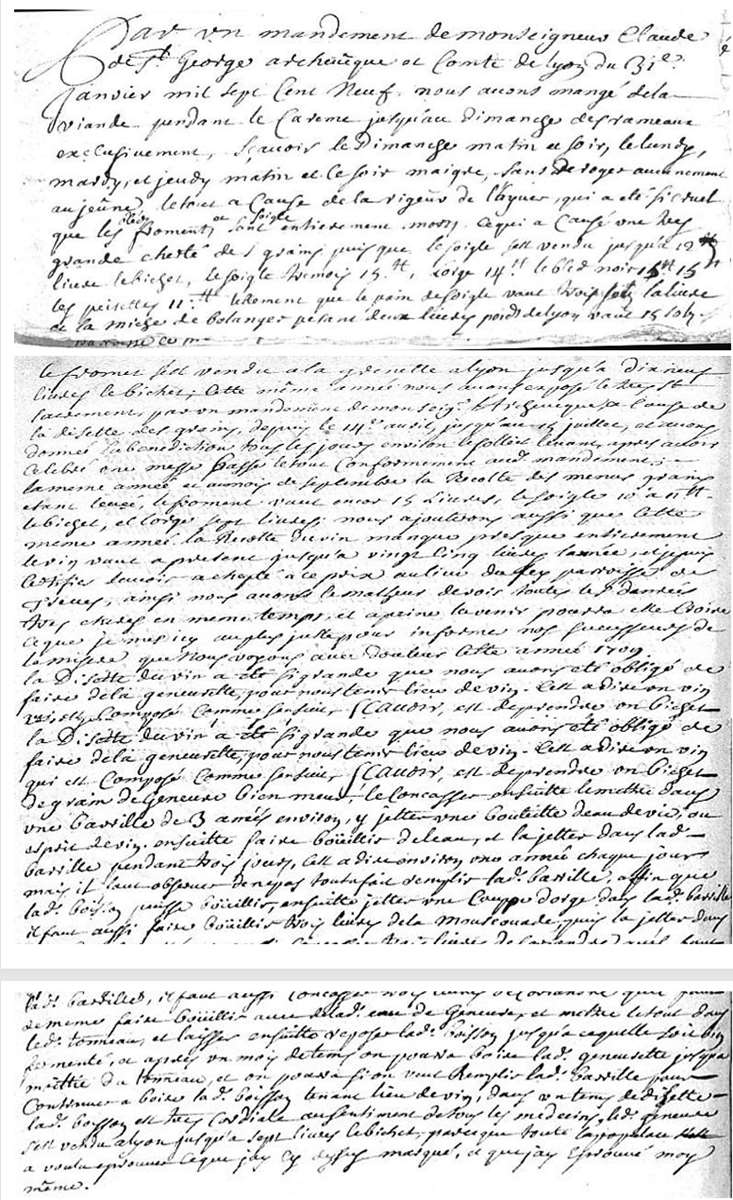 Par un mandement de monseigneur Claude
de St George archeveque et Comte de lyon du 31e
Janvier mil sept Cent Neuf. nous avons mangé de la
viande pendant le Careme jusqu'au Dimanche des rameaux
exclusivement, sçavoir le Dimanche matin et soir, le lundy,
mardy, et jeudy matin et le soir maigre, sans deroger aucunement
au jeûne, le tout a Cause de la rigeur de l'hyver, qui a eté si cruel
que les bleds froments et soigle sont entierement morts. ce qui a Causé une tres
grande cherté des grains puis que le soigle sest vendu jusqu'a 12 tt
livre le bichet, le soigle tremois 15 tt, l'orge 14 tt le bled noir 15
les peisettes 11 tt tellement que le pain de soigle vaut trois sols la livre
et la miche de bolanger pesant deux livres poids de lyon vaut 15 sols.
le froment sest vendu a la grenette a lyon jusqu'a dix neuf
livres le bichet; Cette même année nous avons exposé le tres st
sacrement, par un mandement de monseigr. l'Archeveque a Cause de
la disette des grains, depuis le 14e avril, jusqu'au juillet, et avons
donné la benediction tous les jours environ le solleil levant, apres avoir
Celebré une messe basse le tout Conformement aud. mandement;
la meme année et au mois de septembre la Recolte des menus grains
etant levée, le froment vaut encor 15 Livres, le soigle 10 a 11 tt
le bichet, et l'orge sept livres; nous ajouterons aussi que Cette
même année la Recolte du vin manque presque entierement
le vin vaut a present jusqu'a vingt Cinq livres l'année, et je puis
Certifier l'avoir achepté a ce prix au lieu du paroisse de
Treves, ainsi nous avons le malheur de voir toutes les danrées
tres cheres en meme temps, et a peine l'avenir pourra elle Croire
ce que je mets icy au plus juste pour informer nos successeurs de
la misere que Nous voyons avec douleur Cette année 1709.
la Disette du vin a eté si grande que nous avons eté obligé de
faire de la genevrette, pour nous tenir lieu de vin. C'est a dire un vin
qui est Composé Comme sensuit, SCavoir, est de prendre un bichet
la Disette du vin a eté si grande que nous avons eté obligé de
faire de la genevrette, pour nous tenir lieu de vin. C'est a dire un vin
qui est Composé Comme sensuit, SCavoir, est de prendre un bichet
de grain de Genevre bien meur, le Concasser ensuitte le mettre dans
une barrille de 3 années environ, y jetter une bouteille deau de vie, ou
esprit de vin. ensuitte faire boüillir de leau, et la jetter dans lad.
barrille pendant trois jours, C'est a dire environ une année chaque jour
mais il faut observer de ne pas tout a fait remplir lad. barrille, affin que
lad. boisson puisse boüillir, ensuitte jetter une Couppe d'orge dans lad. barrille
il faut aussi faire boüillir trois livres de la mouscouade, puis la jetter dans
lad. barrille, il faut aussi Concasser trois livres de Coriandre qu'il faut
de meme faire boüillir avec de lad. eau de Genevre, et mettre le tout dans
led. tonneau, et laisser ensuitte reposer lad. boisson jusqu'a ce quelle soit bien
fermenté, et apres un mois de tems on pourra boire lad. genevrette jusqu'a
moittié du tonneau, et on pourra si on veut Remplir lad. barrille pour
Continuer a boire lad. boisson tenant lieu de vin, dans un tems de disette
lad. boisson est tres Cordiale au sentiment de tous les medecins, led. genevre
sest vendu a lyon jusqu'a sept livres le bichet, parce que toute la populace
a voulu eprouver ce que jay cy dessus marqué, et que jay esprouvé moy
même.